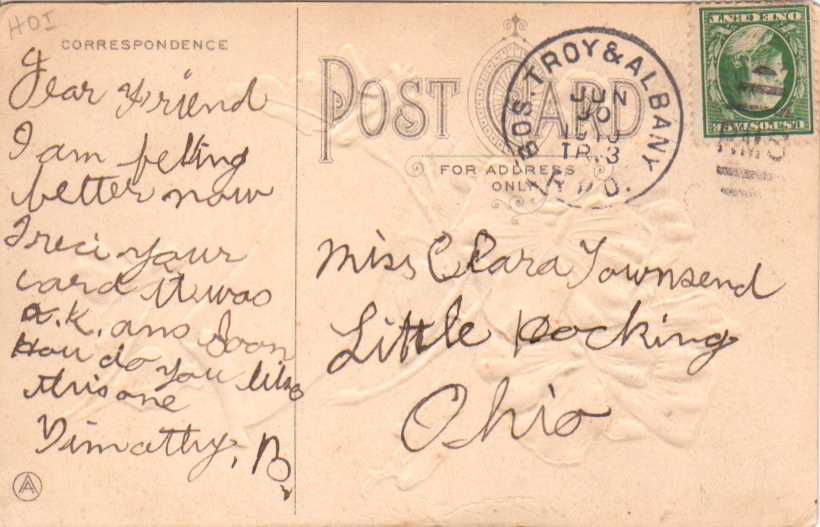 HOI
CORRESPONDENCE
Dear Friend
I am felling
better now
I reci your
card it was
O.K. ans Soon
How do you like
this one
Timathy. B.
A
POST CARD
FOR ADDRESS
ONLY
BOS. TROY & ALBANY
JUN
30
TR.3
R.P.O.
ONE CENT
U.S. POSTAGE
RMS
Miss Clara Townsend
Little Hocking
Ohio